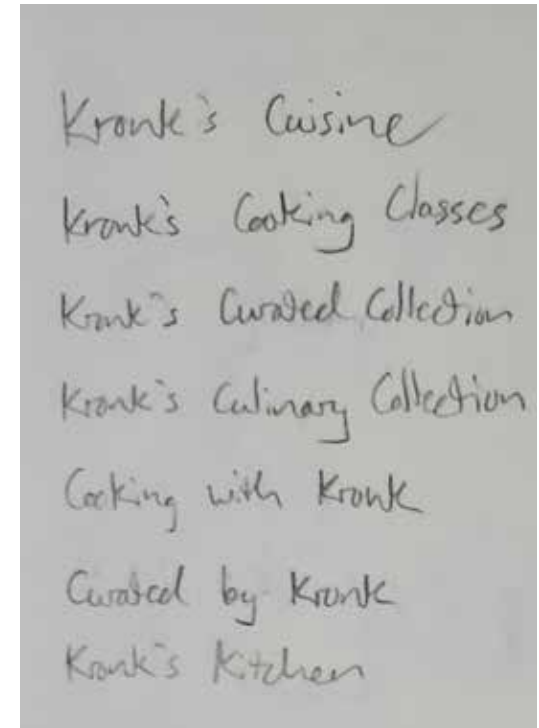 Kronk's Cuisine
Kronk's Cooking Classes
Kronk's Curated Collection
Kronk's Culinary Collection
Cooking with Kronk
Curated by Kronk
Kronk's Kitchen